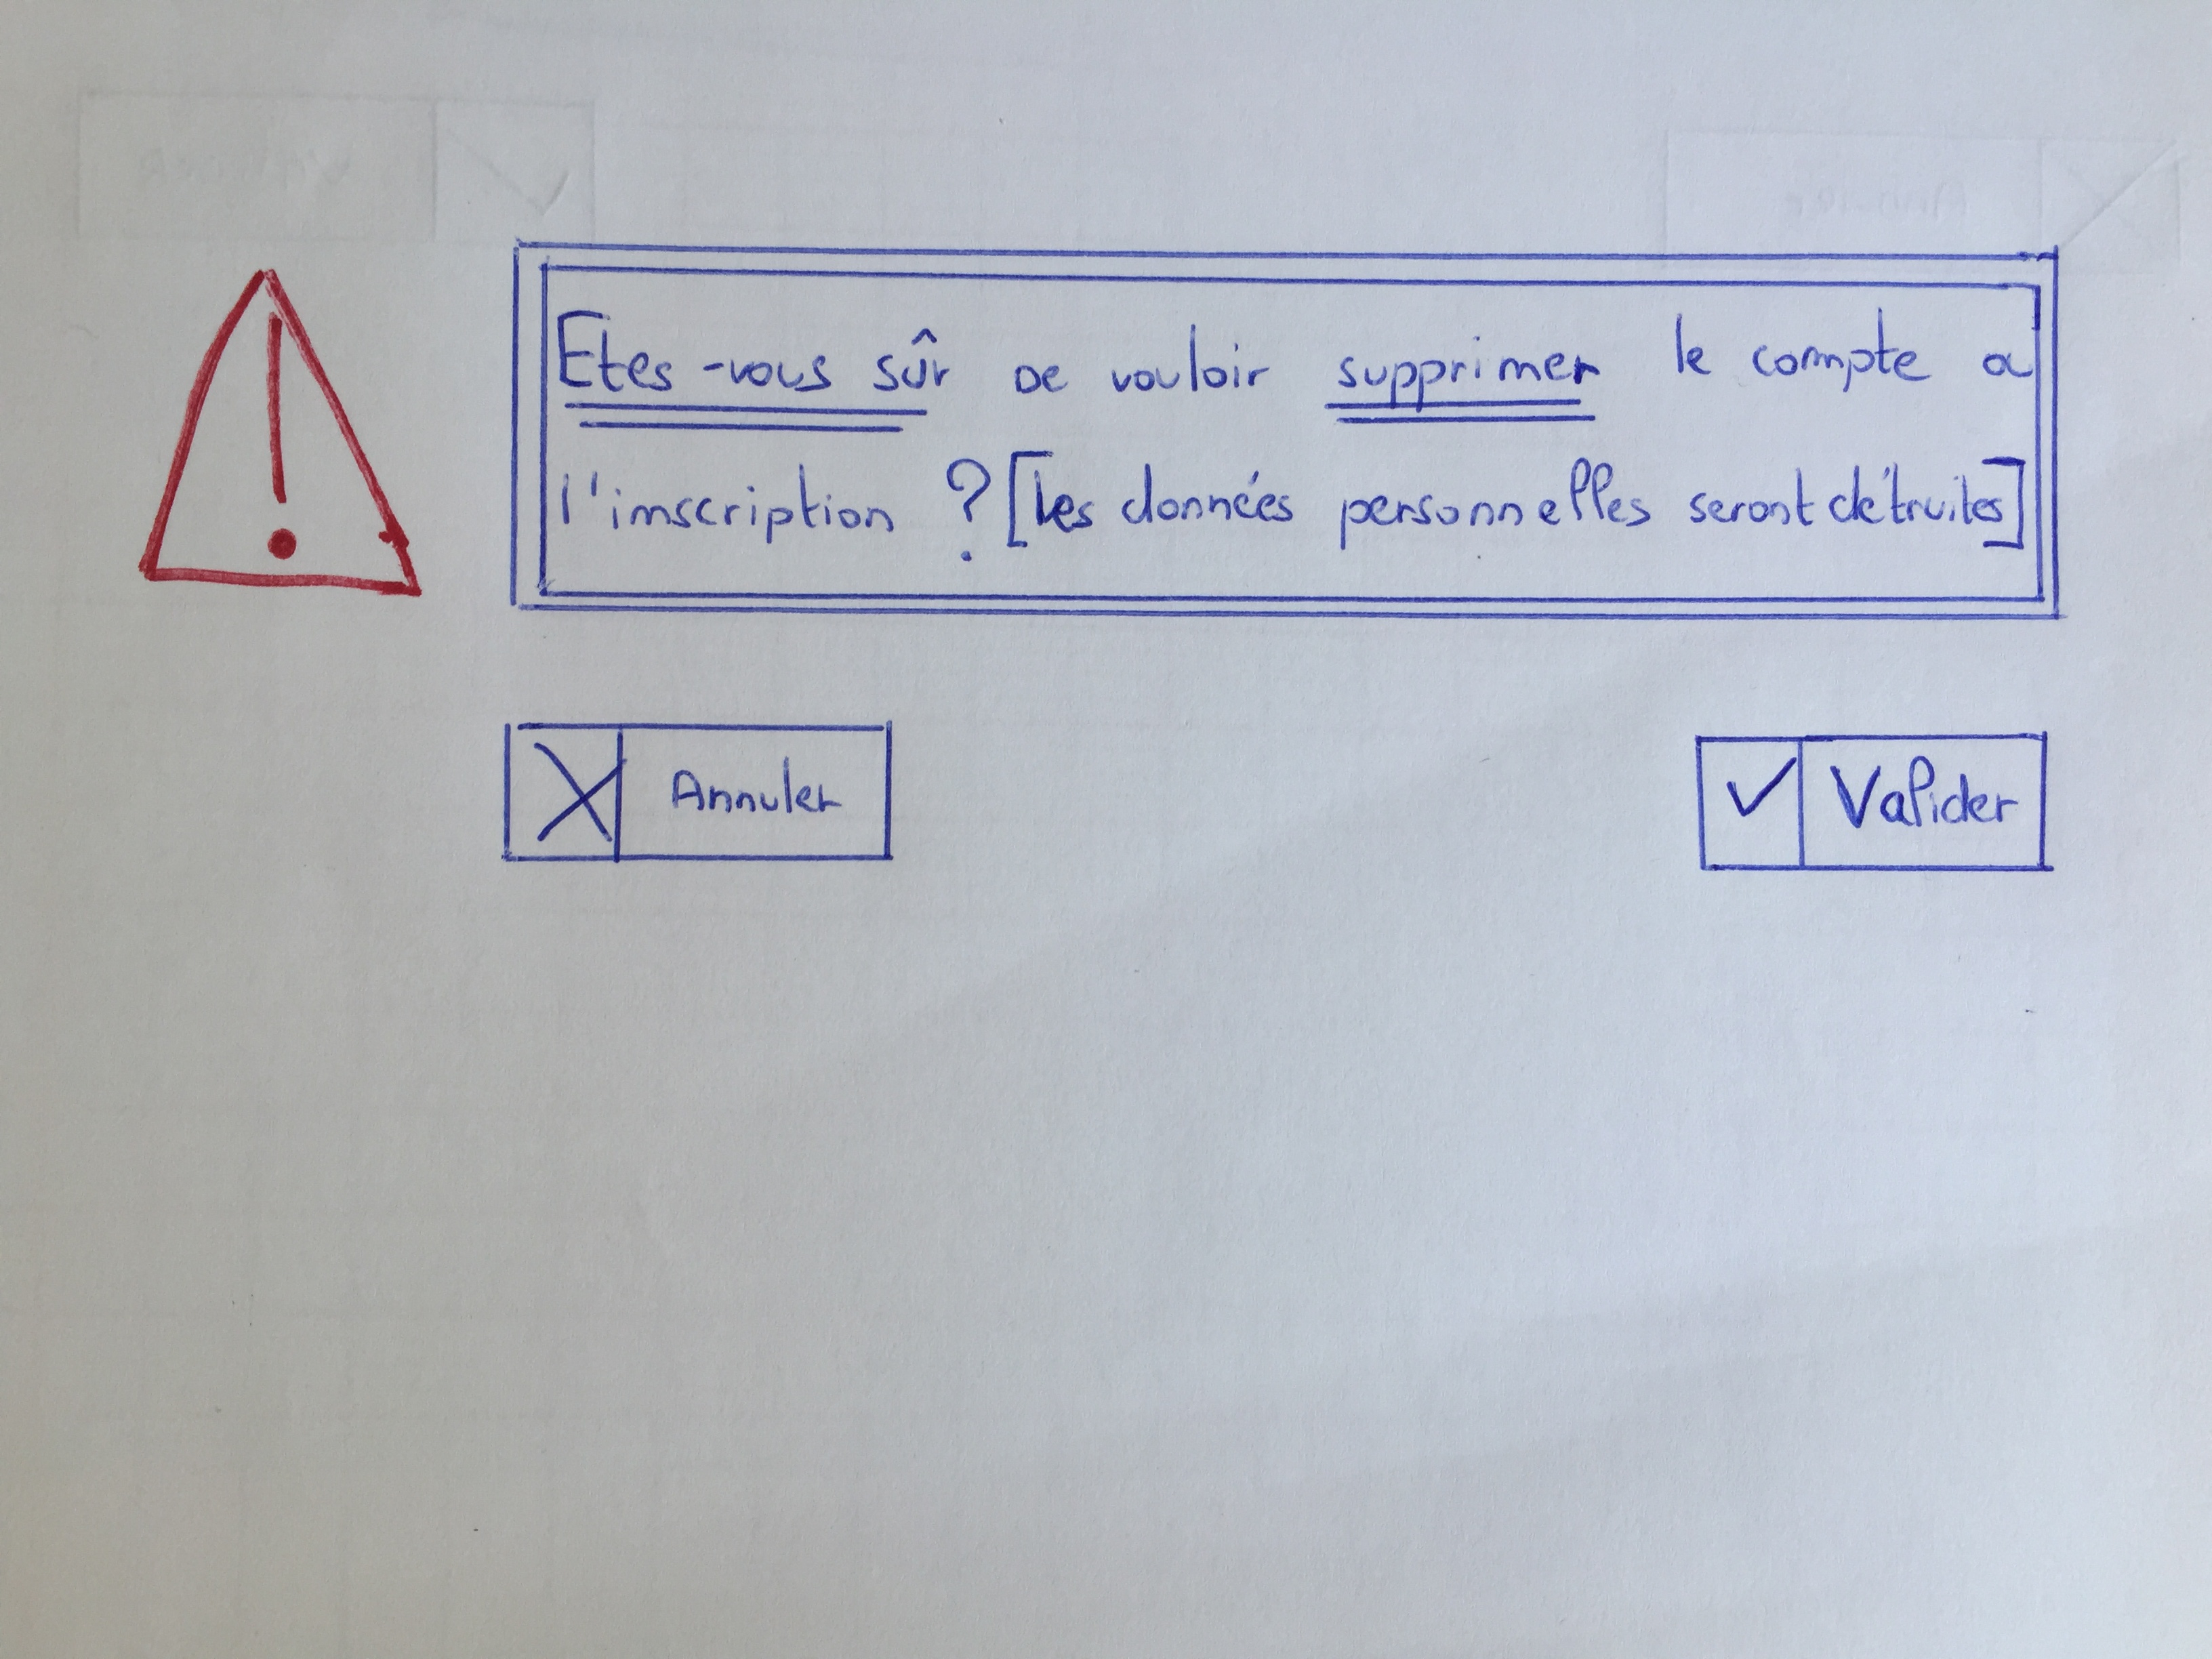 Etes-vous sûr de vouloir supprimer le compte a
l'inscription ? [les données personnelles seront détruites]
Annuler
Valider